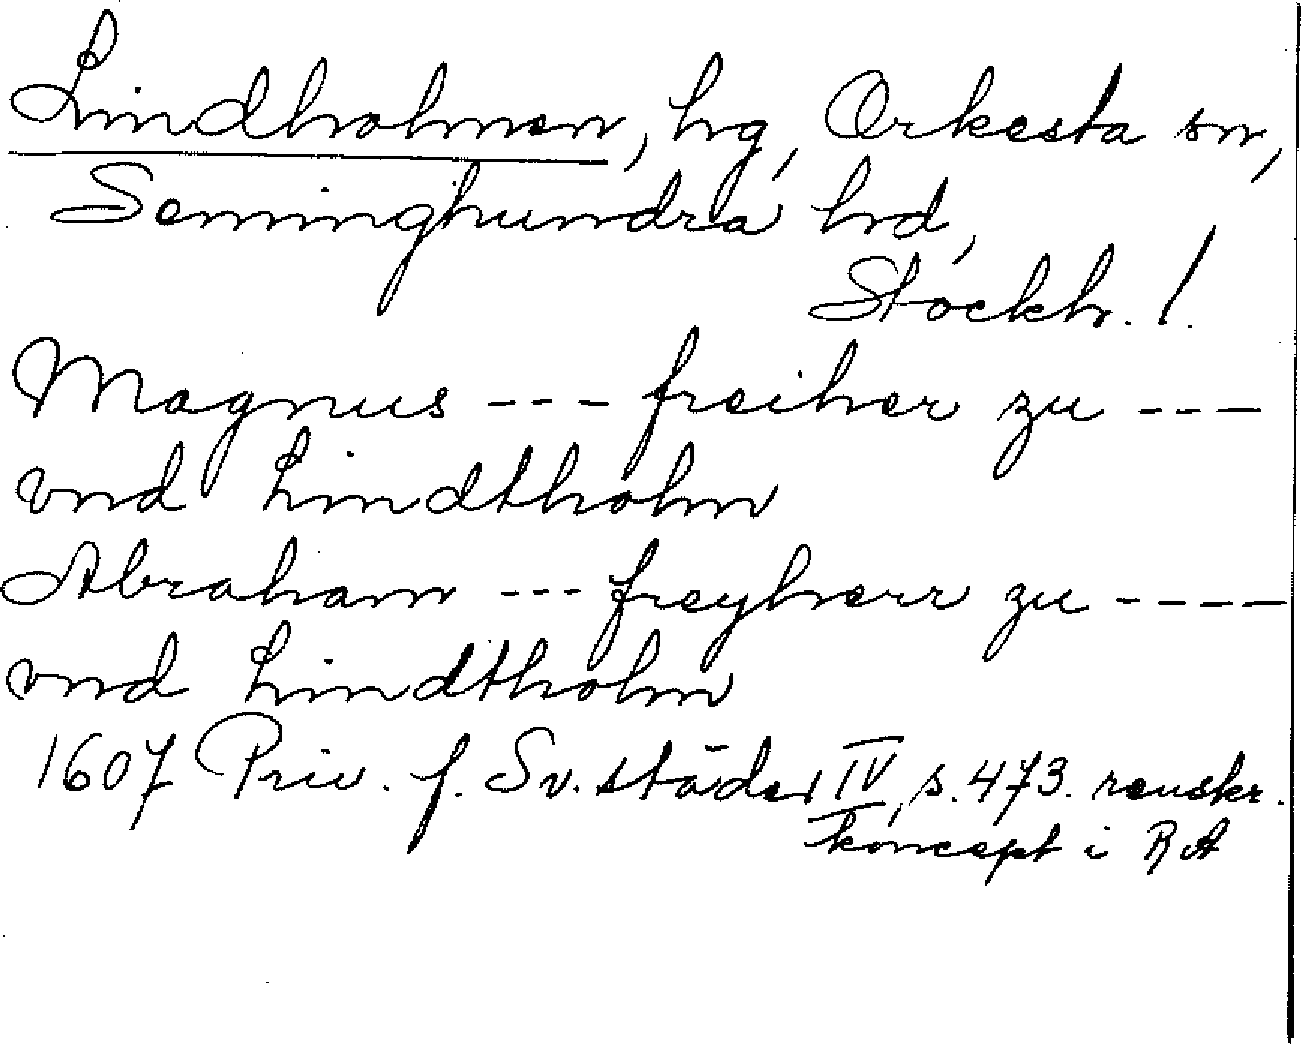 Lindholmen, hg, Orkesta sn,
Seminghundra hd,
Stockh. l.
Magnus --- freiher zu ---
vnd Lindtholm
Abraham --- freyherr zu ----
vnd Lindtholm
1607 Priv. f. Sv. städer IV, s. 473. renskr.
koncept i RA